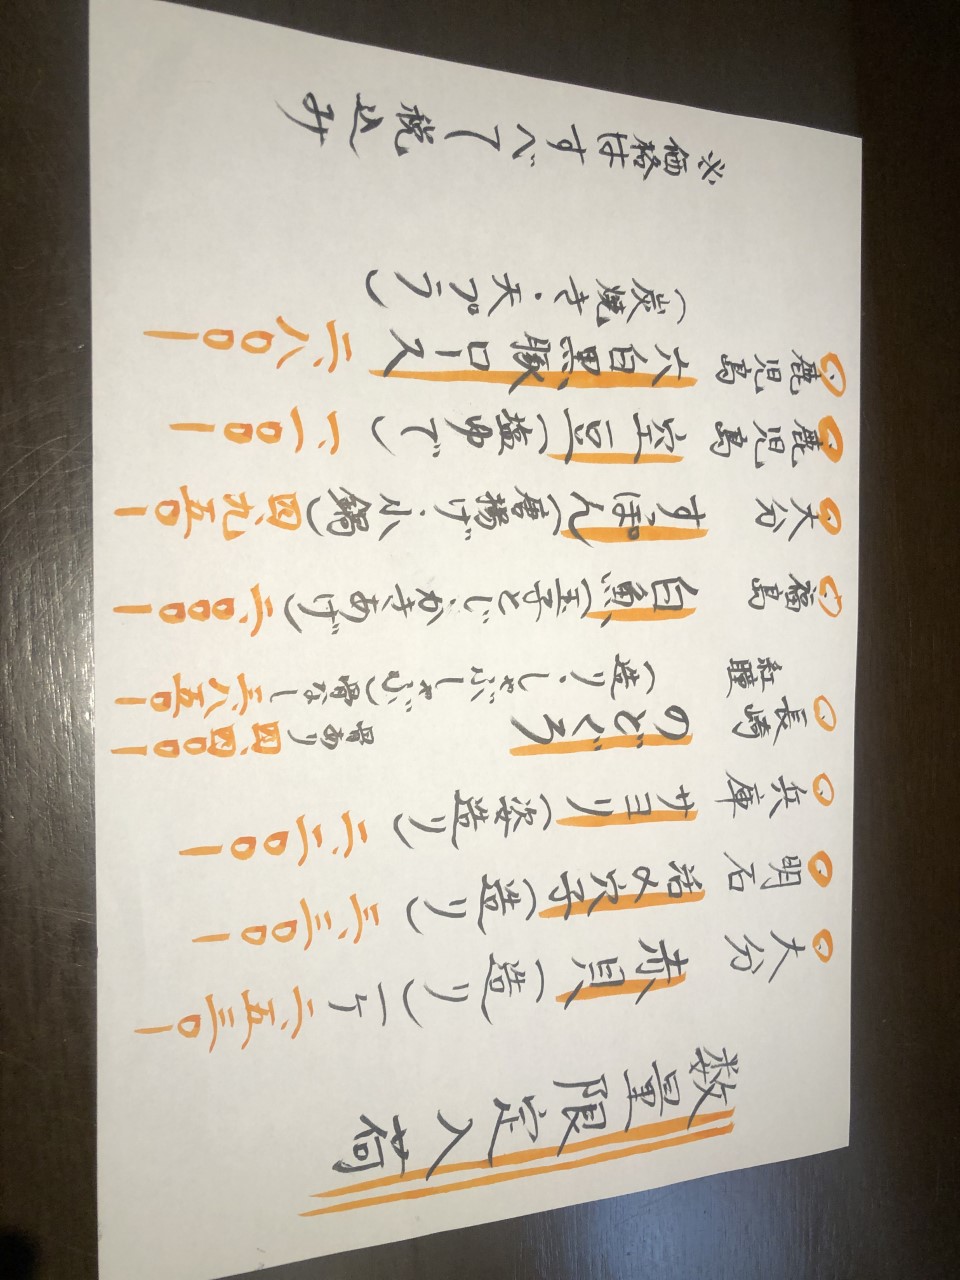 数量限定入荷
大分 赤貝(造り)一ケ 二、五三〇ー
明石 活〆穴子(造り) 三、三〇〇ー
兵庫 サヨリ(姿造り) 二、二〇〇ー
長崎 のどぐろ 骨あり 四、四〇〇ー
紅瞳 (造り・しゃぶしゃぶ)骨なし 三、八五〇ー
福島 白魚(玉子とじ・かきあげ) 二、〇〇〇ー
大分 すっぽん(唐揚げ・小鍋) 四、九五〇ー
鹿児島 空豆(塩ゆで) 一、一〇〇ー
鹿児島 六白黒豚ロース 二、八〇〇ー
(炭焼き・天プラ)
※価格はすべて税込み